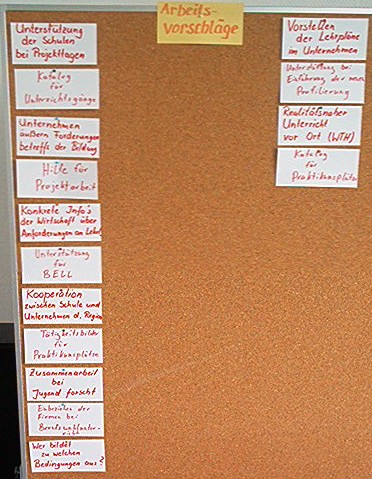 Arbeits-
vorschläge
Unterstützung
der Schulen
bei Projekttagen
Katalog
für
Unterrichtsgänge
Unternehmen
äußern Forderungen
betreffs der Bildung
Hilfe für
Projektarbeit
Konkrete Info's
der Wirtschaft über
Anforderungen an Lehrl.
Unterstützung
für
BELL
Kooperation
zwischen Schule und
Unternehmen d. Region
Tätigkeitsbilder
für
Praktikumsplätze
Zusammenarbeit
bei
Jugend forscht
Einbeziehen der
Firmen bei
Berufswahlunter-
richt
Wer bildet
zu welchen
Bedingungen aus?
Vorstellen
der Lehrpläne
im Unternehmen
Unterstützung bei
Einführung der neuen
Profilierung
Realitätsnaher
Unterricht
vor Ort (WTH)
Katalog
für
Praktikumsplätze